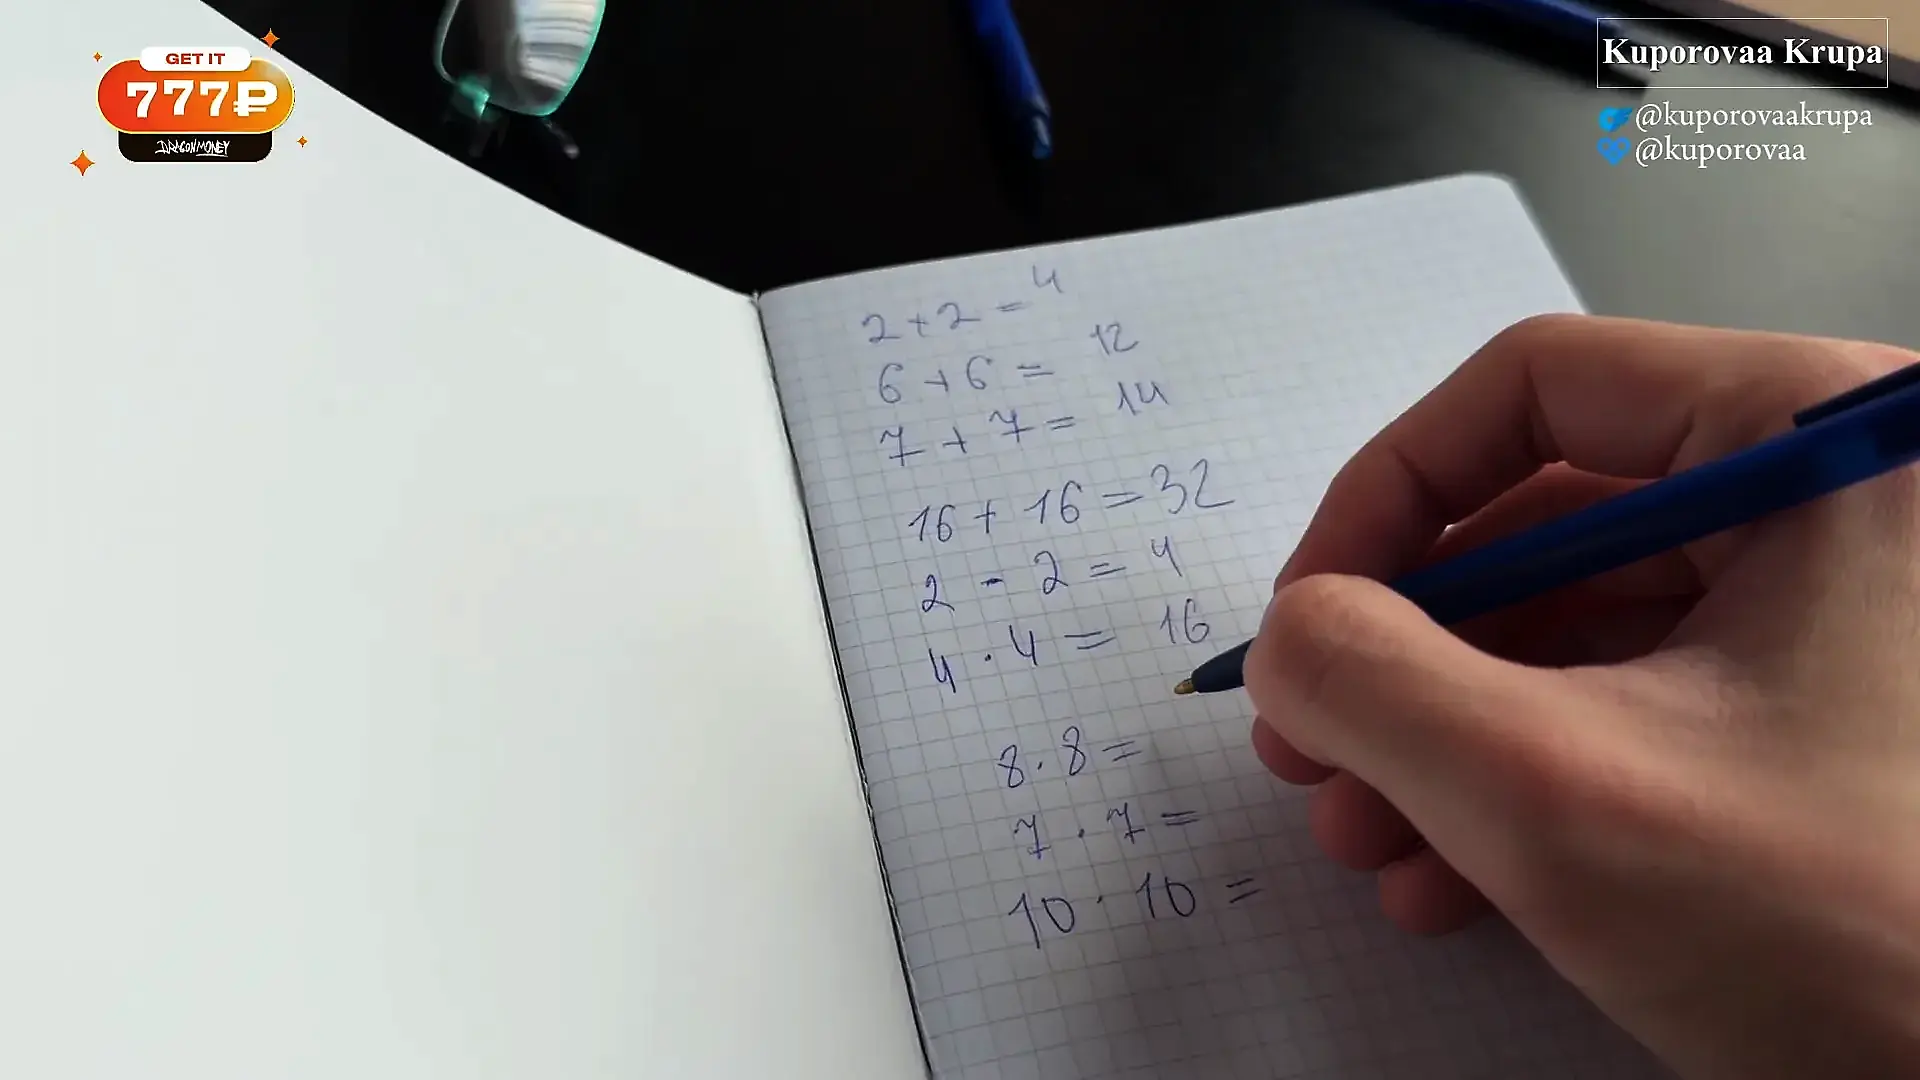 GET IT
777₽
DRAGON MONEY
Kuporovaa Krupa
@kuporovaakrupa
@kuporovaa
2 + 2 = 4
6 + 6 = 12
7 + 7 = 14
16 + 16 = 32
2 - 2 = 4
4 · 4 = 16
8 · 8 =
7 · 7 =
10 · 10 =